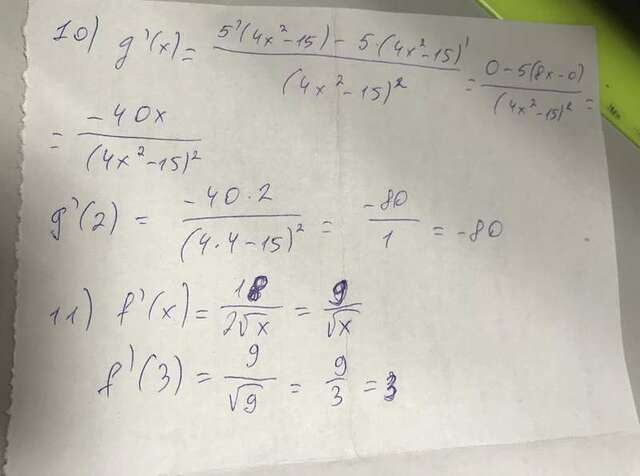 10) g'(x) = (5'(4x²-15) - 5·(4x²-15)')/(4x²-15)² = (0-5(8x-0))/(4x²-15)² =
= (-40x)/(4x²-15)²
g'(2) = (-40·2)/(4·4-15)² = (-80)/1 = -80
11) f'(x) = 18/(2√x) = 9/√x
f'(3) = 9/√9 = 9/3 = 3